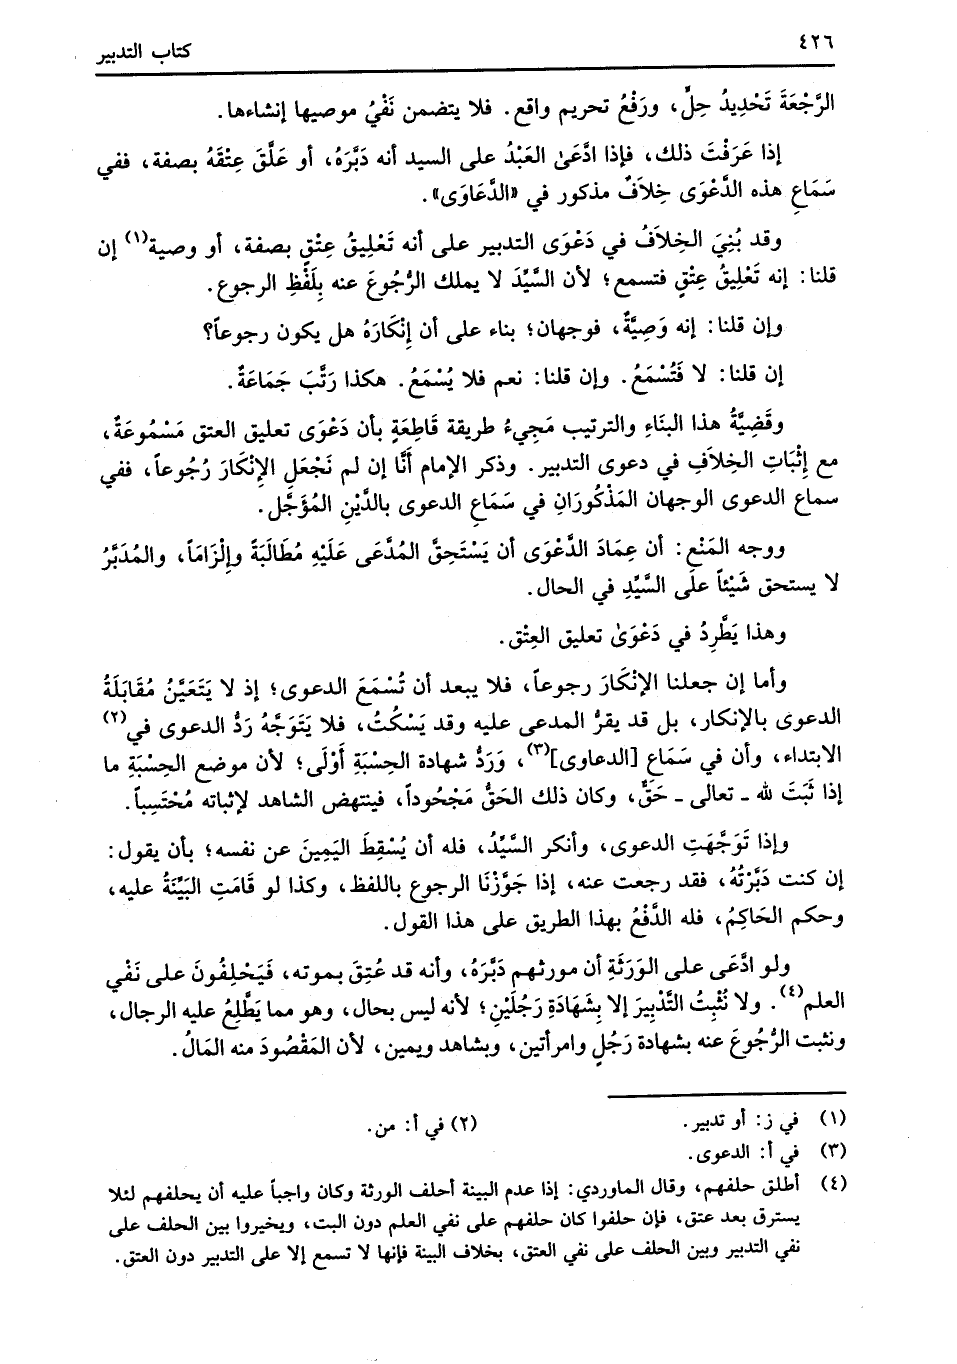 ٤٢٦
كتاب التدبير
الرَّجْعَةَ تَحْدِيدُ حِلٍّ، ورَفْعُ تحريم واقع. فلا يتضمن نَفْيُ موصيها إنشاءها.
إذا عَرَفْتَ ذلك، فإذا ادَّعَىٰ العَبْدُ على السيد أنه دَبَّرَهُ، أو عَلَّقَ عِتْقَهُ بصفة، ففي
سَمَاعِ هذه الدَّعْوَى خِلاَفٌ مذكور في «الدَّعَاوَى».
وقد بُنِيَ الخِلاَفُ في دَعْوَى التدبير على أنه تَعْلِيقُ عِتْقٍ بصفة، أو وصية(١) إن
قلنا: إنه تَعْلِيقُ عِتْقٍ فتسمع؛ لأن السَّيِّدَ لا يملك الرُّجُوعَ عنه بِلَفْظِ الرجوع.
وإن قلنا: إنه وَصِيَّةٌ، فوجهان؛ بناء على أن إِنْكَارَهُ هل يكون رجوعاً؟
إن قلنا: لا فَتُسْمَعُ. وإن قلنا: نعم فلا يُسْمَعُ. هكذا رَتَّبَ جَمَاعَةٌ.
وقَضِيَّةُ هذا البنَاءِ والترتيب مَجِيءُ طريقة قَاطِعَةٍ بأن دَعْوَى تعليق العتق مَسْمُوعَةٌ،
مع إِثْبَاتِ الخِلاَفِ في دعوى التدبير. وذكر الإمام أَنَّا إن لم نَجْعَلِ الإِنْكَارَ رُجُوعاً، ففي
سماع الدعوى الوجهان المَذْكُورَانِ في سَمَاعِ الدعوى بالدَّيْنِ المُؤَجَّلِ.
ووجه المَنْعِ: أن عِمَادَ الدَّعْوَى أن يَسْتَحِقَّ المُدَّعَى عَلَيْهِ مُطَالَبَةً وإِلْزَامَاً، والمُدَبَّرُ
لا يستحق شَيْئاً علَى السَّيِّدِ في الحال.
وهذا يَطَّرِدُ في دَعْوَىٰ تعليق العِتْق.
وأما إن جعلنا الإِنْكَارَ رجوعاً، فلا يبعد أن تُسْمَعَ الدعوى؛ إذ لا يَتَعَيَّنُ مُقَابَلَةُ
الدعوى بالإنكار، بل قد يقرُّ المدعى عليه وقد يَسْكُتُ، فلا يَتَوَجَّهُ رَدُّ الدعوى في(٢)
الابتداء، وأن في سَمَاعِ [الدعاوى](٣)، وَرَدُّ شهادة الحِسْبَةِ أَوْلَى؛ لأن موضع الحِسْبَةِ ما
إذا ثَبَتَ لله ـ تعالى ـ حَقٌّ، وكان ذلك الحَقُّ مَجْحُوداً، فينتهض الشاهد لإثباته مُحْتَسِباً.
وإذا تَوَجَّهَتِ الدعوى، وأنكر السَّيِّدُ، فله أن يُسْقِطَ اليَمِينَ عن نفسه؛ بأن يقول:
إن كنت دَبَّرْتُهُ، فقد رجعت عنه، إذا جَوَّزْنَا الرجوع باللفظ، وكذا لو قَامَتِ البَيِّنَةُ عليه،
وحكم الحَاكِمُ، فله الدَّفْعُ بهذا الطريق على هذا القول.
ولو ادَّعَى على الوَرَثَةِ أن مورثهم دَبَّرَهُ، وأنه قد عُتِقَ بموته، فَيَحْلِفُونَ على نَفْي
العلم(٤). ولا نُثْبِتُ التَّدْبِيرَ إلا بِشَهَادَةِ رَجُلَيْنِ؛ لأنه ليس بحال، وهو مما يَطَّلِعُ عليه الرجال،
ونثبت الرُّجُوعَ عنه بشهادة رَجُلٍ وامرأتين، وبشاهد ويمين، لأن المَقْصُودَ منه المَالُ.
(١) في ز: أو تدبير.
(٢) في أ: من.
(٣) في أ: الدعوى.
(٤) أطلق حلفهم، وقال الماوردي: إذا عدم البينة أحلف الورثة وكان واجباً عليه أن يحلفهم لئلا
يسترق بعد عتق، فإن حلفوا كان حلفهم على نفي العلم دون البت، ويخيروا بين الحلف على
نفي التدبير وبين الحلف على نفي العتق، بخلاف البينة فإنها لا تسمع إلا على التدبير دون العتق.